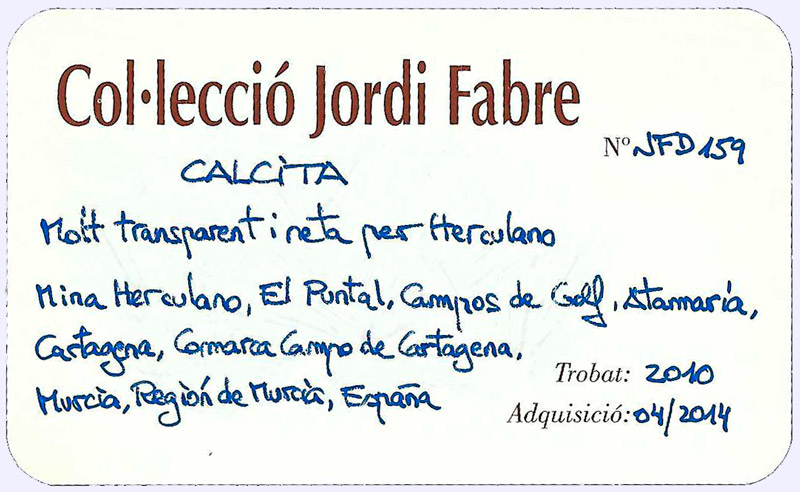 Col·lecció Jordi Fabre
Nº JFD159
CALCÌTA
Molt transparent i neta per Herculano
Mina Herculano, El Puntal, Campos de Golf, Atamaría,
Cartagena, Comarca Campo de Cartagena,
Murcìa, Regìón de Murcìa, España
Trobat: 2010
Adquisició: 04/2014